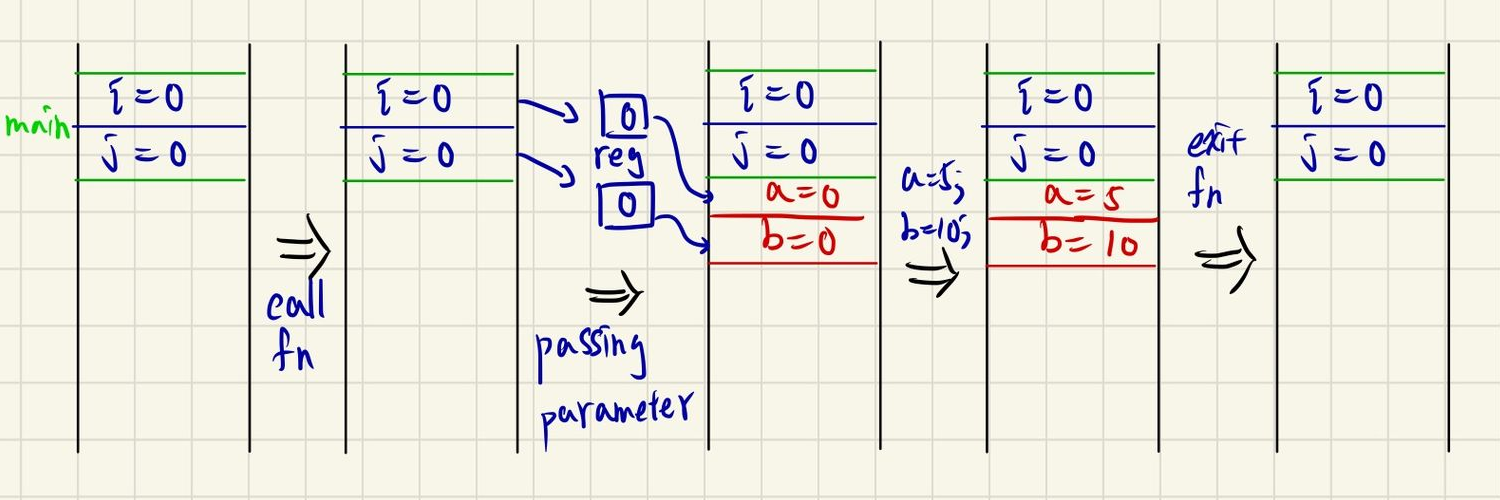 main
i = 0
j = 0
call
fn
i = 0
j = 0
0
reg
0
passing
parameter
i = 0
j = 0
a = 0
b = 0
a=5;
b=10;
i = 0
j = 0
a = 5
b = 10
exit
fn
i = 0
j = 0